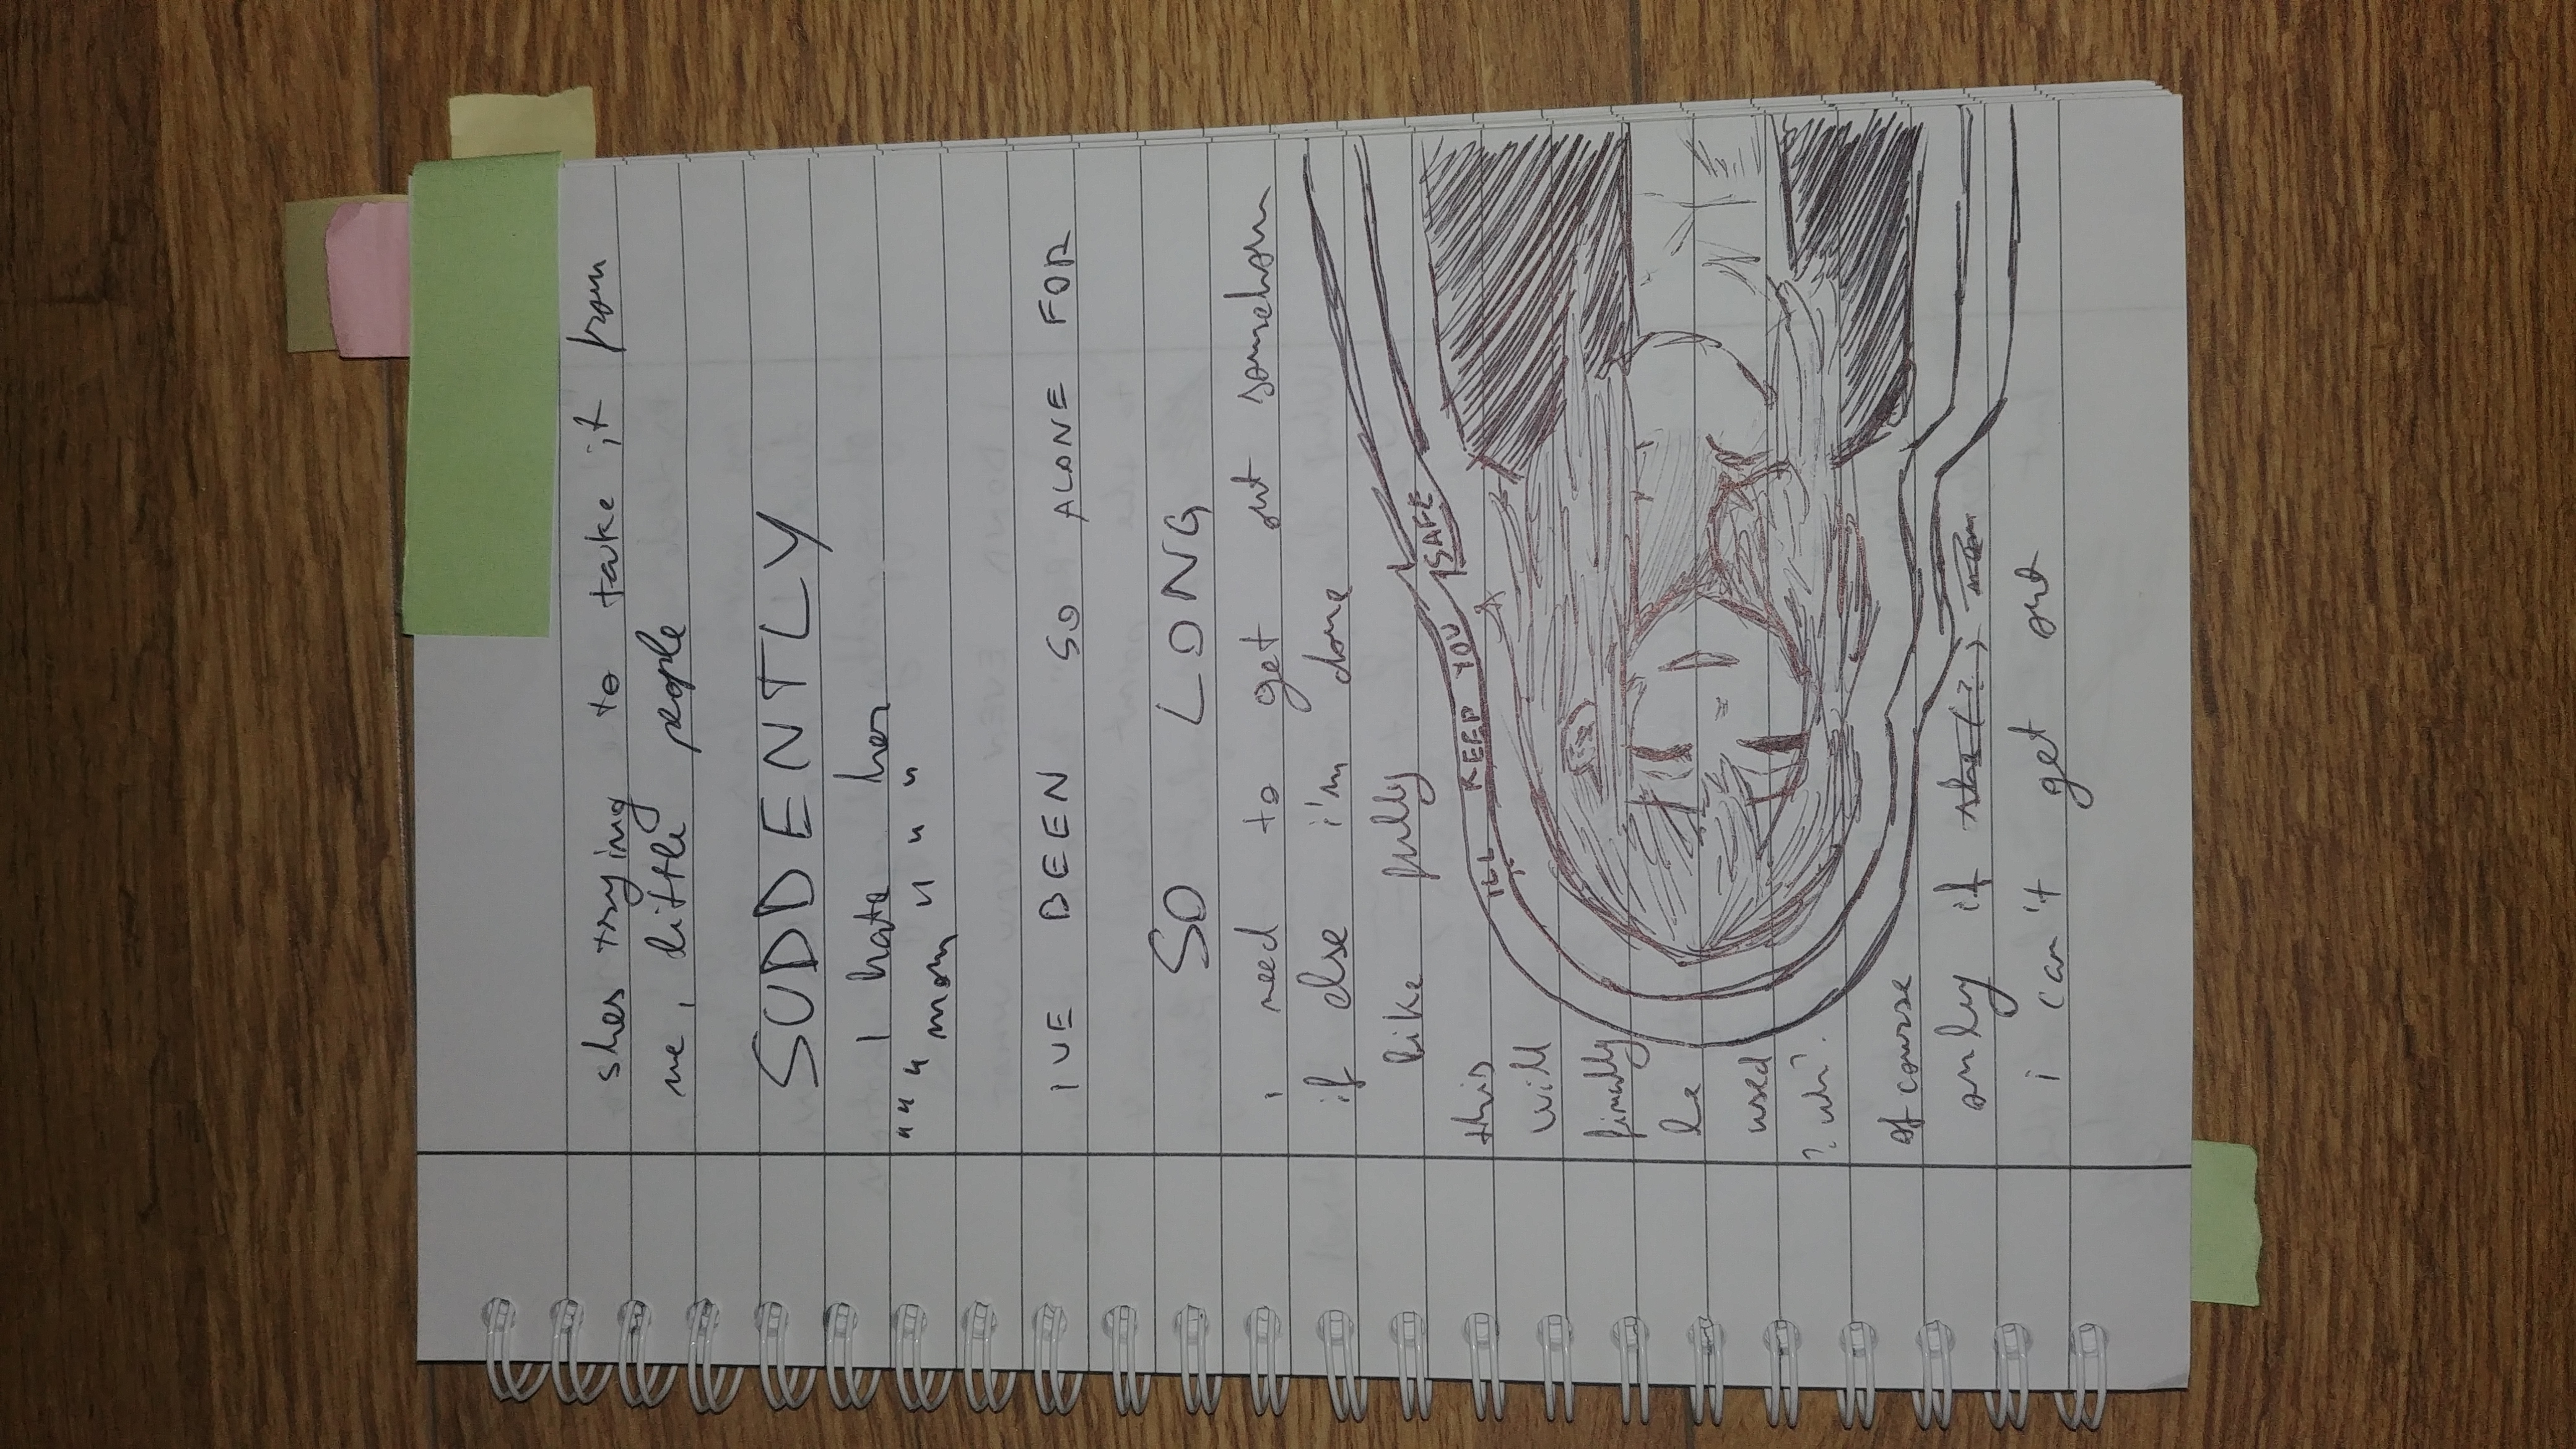 shes trying to take it from
me, little people
SUDDENTLY
I hate her
"""mom"""
IVE BEEN SO ALONE FOR
SO LONG
i need to get out somehow
if else i'm done
like fully
ILL KEEP YOU SAFE
this
will
finally
be
used
?uh?
of course
onley if she(?) mom
i can't get out